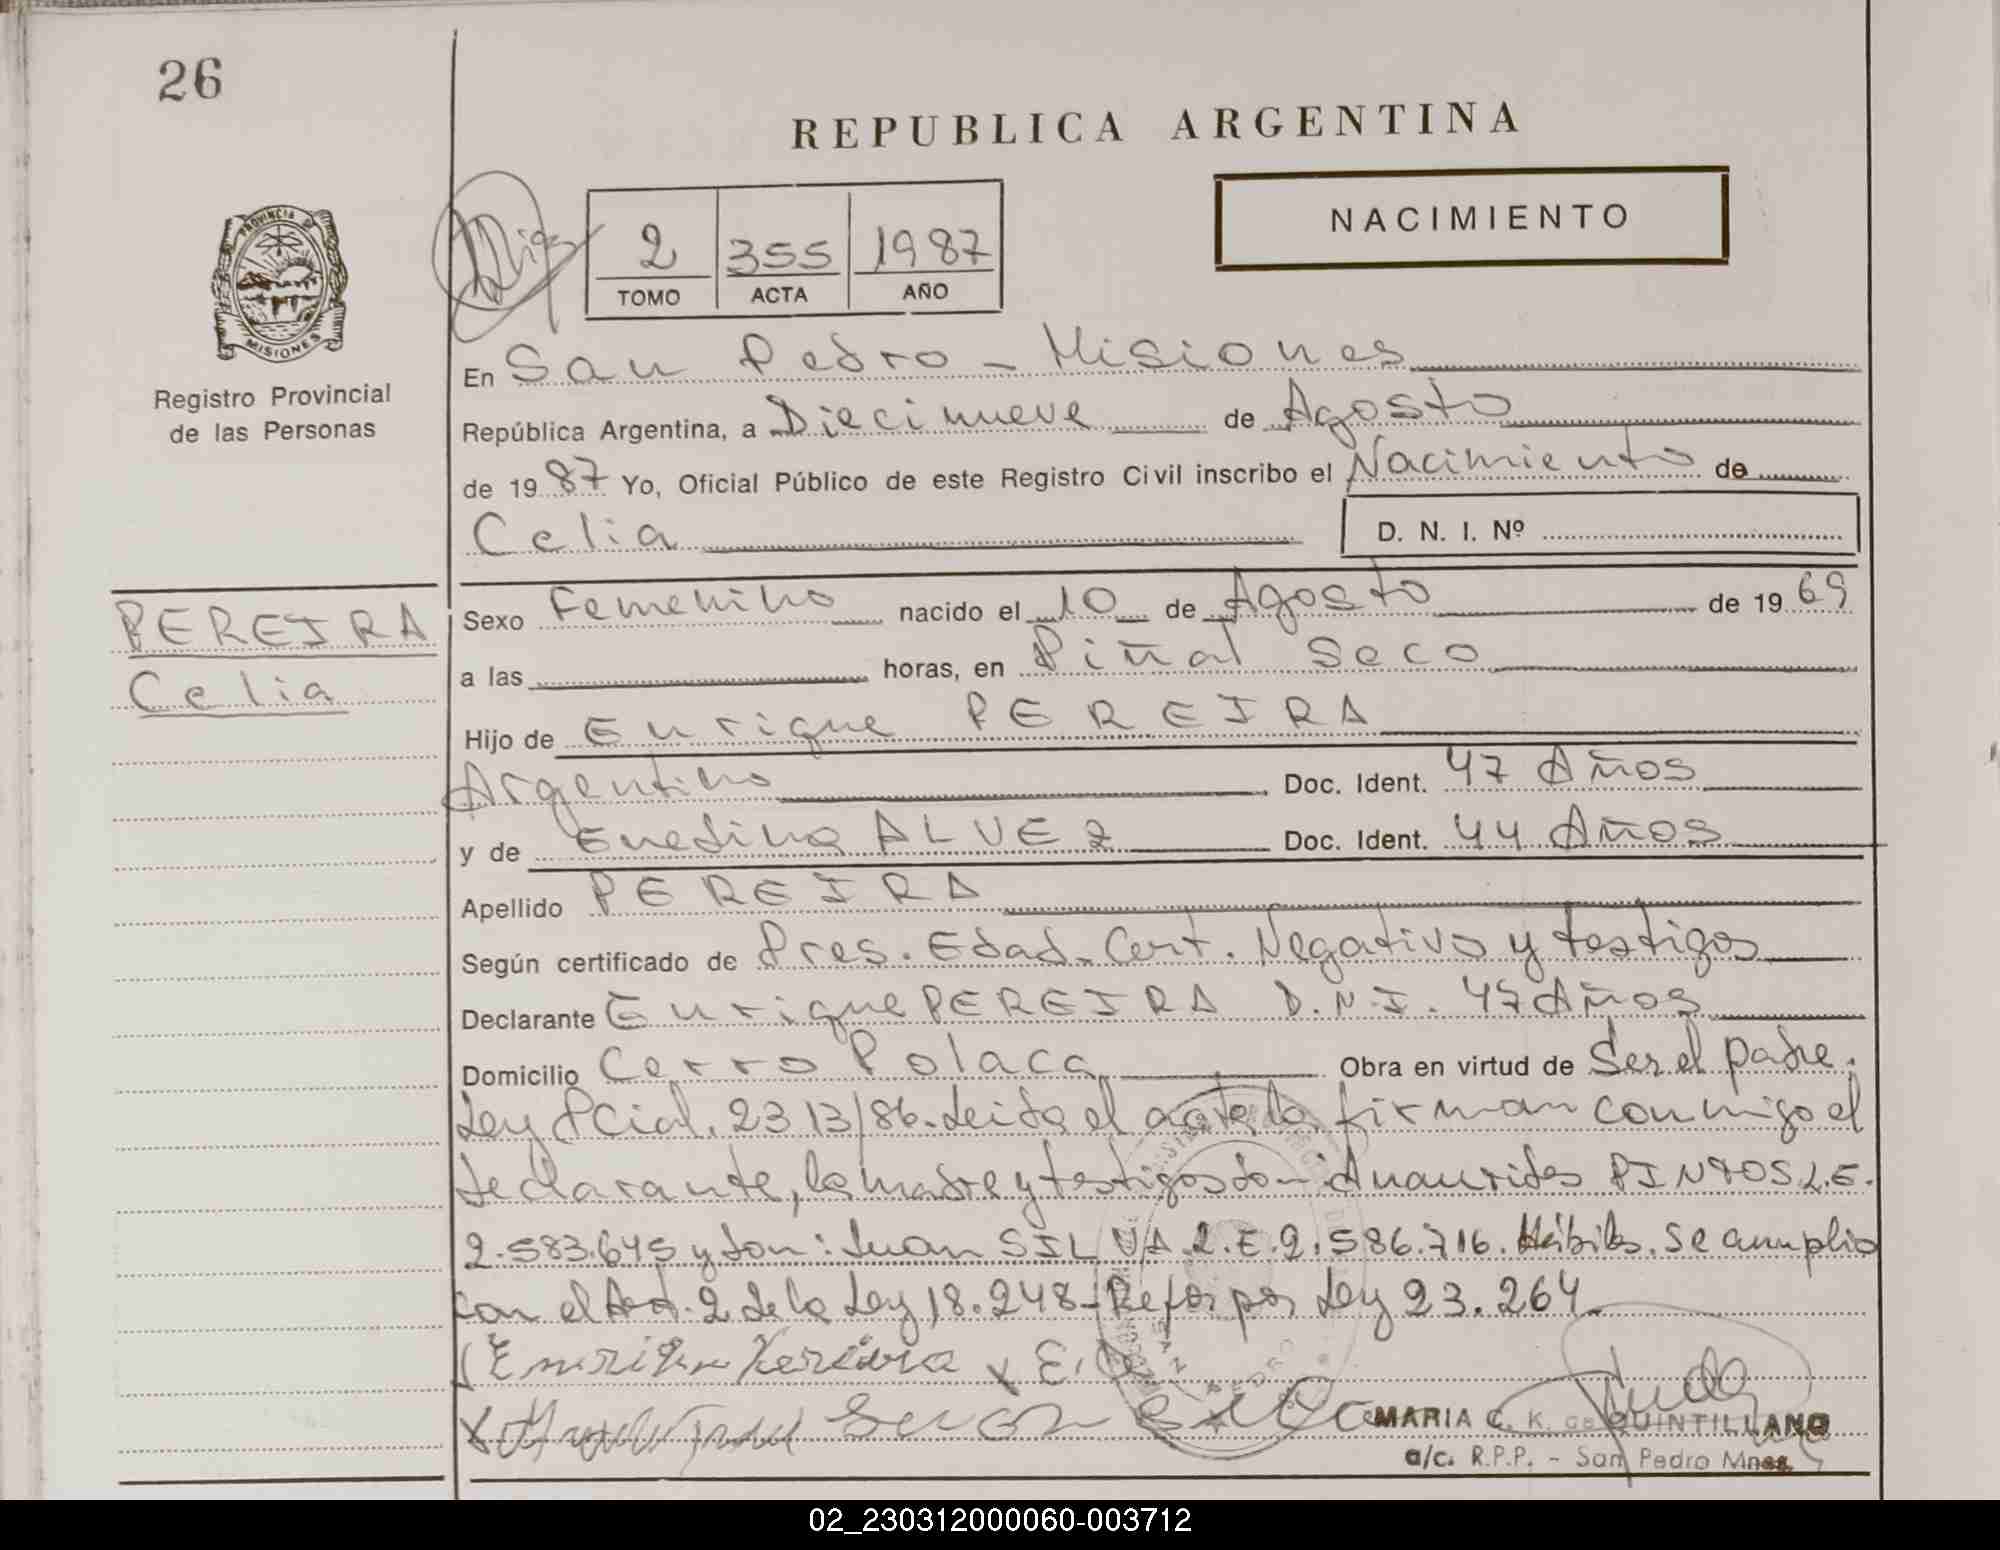 26
REPUBLICA ARGENTINA
NACIMIENTO
2 355 1987
TOMO ACTA AÑO
PROVINCIA DE
MISIONES
Registro Provincial
de las Personas
En San Pedro - Misiones
República Argentina, a Diecinueve de Agosto
de 1987 Yo, Oficial Público de este Registro Civil inscribo el Nacimiento de
Celia D. N. I. Nº
PEREIRA
Celia
Sexo Femenino nacido el 10 de Agosto de 1969
a las horas, en Piñal Seco
Hijo de Enrique PEREIRA
Argentino Doc. Ident. 47 Años
y de Enedina ALVEZ Doc. Ident. 44 Años
Apellido PEREIRA
Según certificado de Pres. Edad - Cert. Negativo y testigos
Declarante Enrique PEREIRA D.N.I. 47 Años
Domicilio Cerro Polaca Obra en virtud de Ser el padre.
Ley Pcial. 2313/86. Leida el acta la firman conmigo el
declarante, la madre y testigos don: Amaurides PINTOS L.E.
2.583.645 y don: Juan SILVA L.E. 2.586.716. Hábiles. Se cumplio
con el Art. 2 de la Ley 18.248 - Refor por Ley 23.264
Pereira x E.
x Juan
SAN PEDRO
MARIA C. K. de QUINTILLANO
a/c. R.P.P. - San Pedro Mnes.
02_230312000060-003712